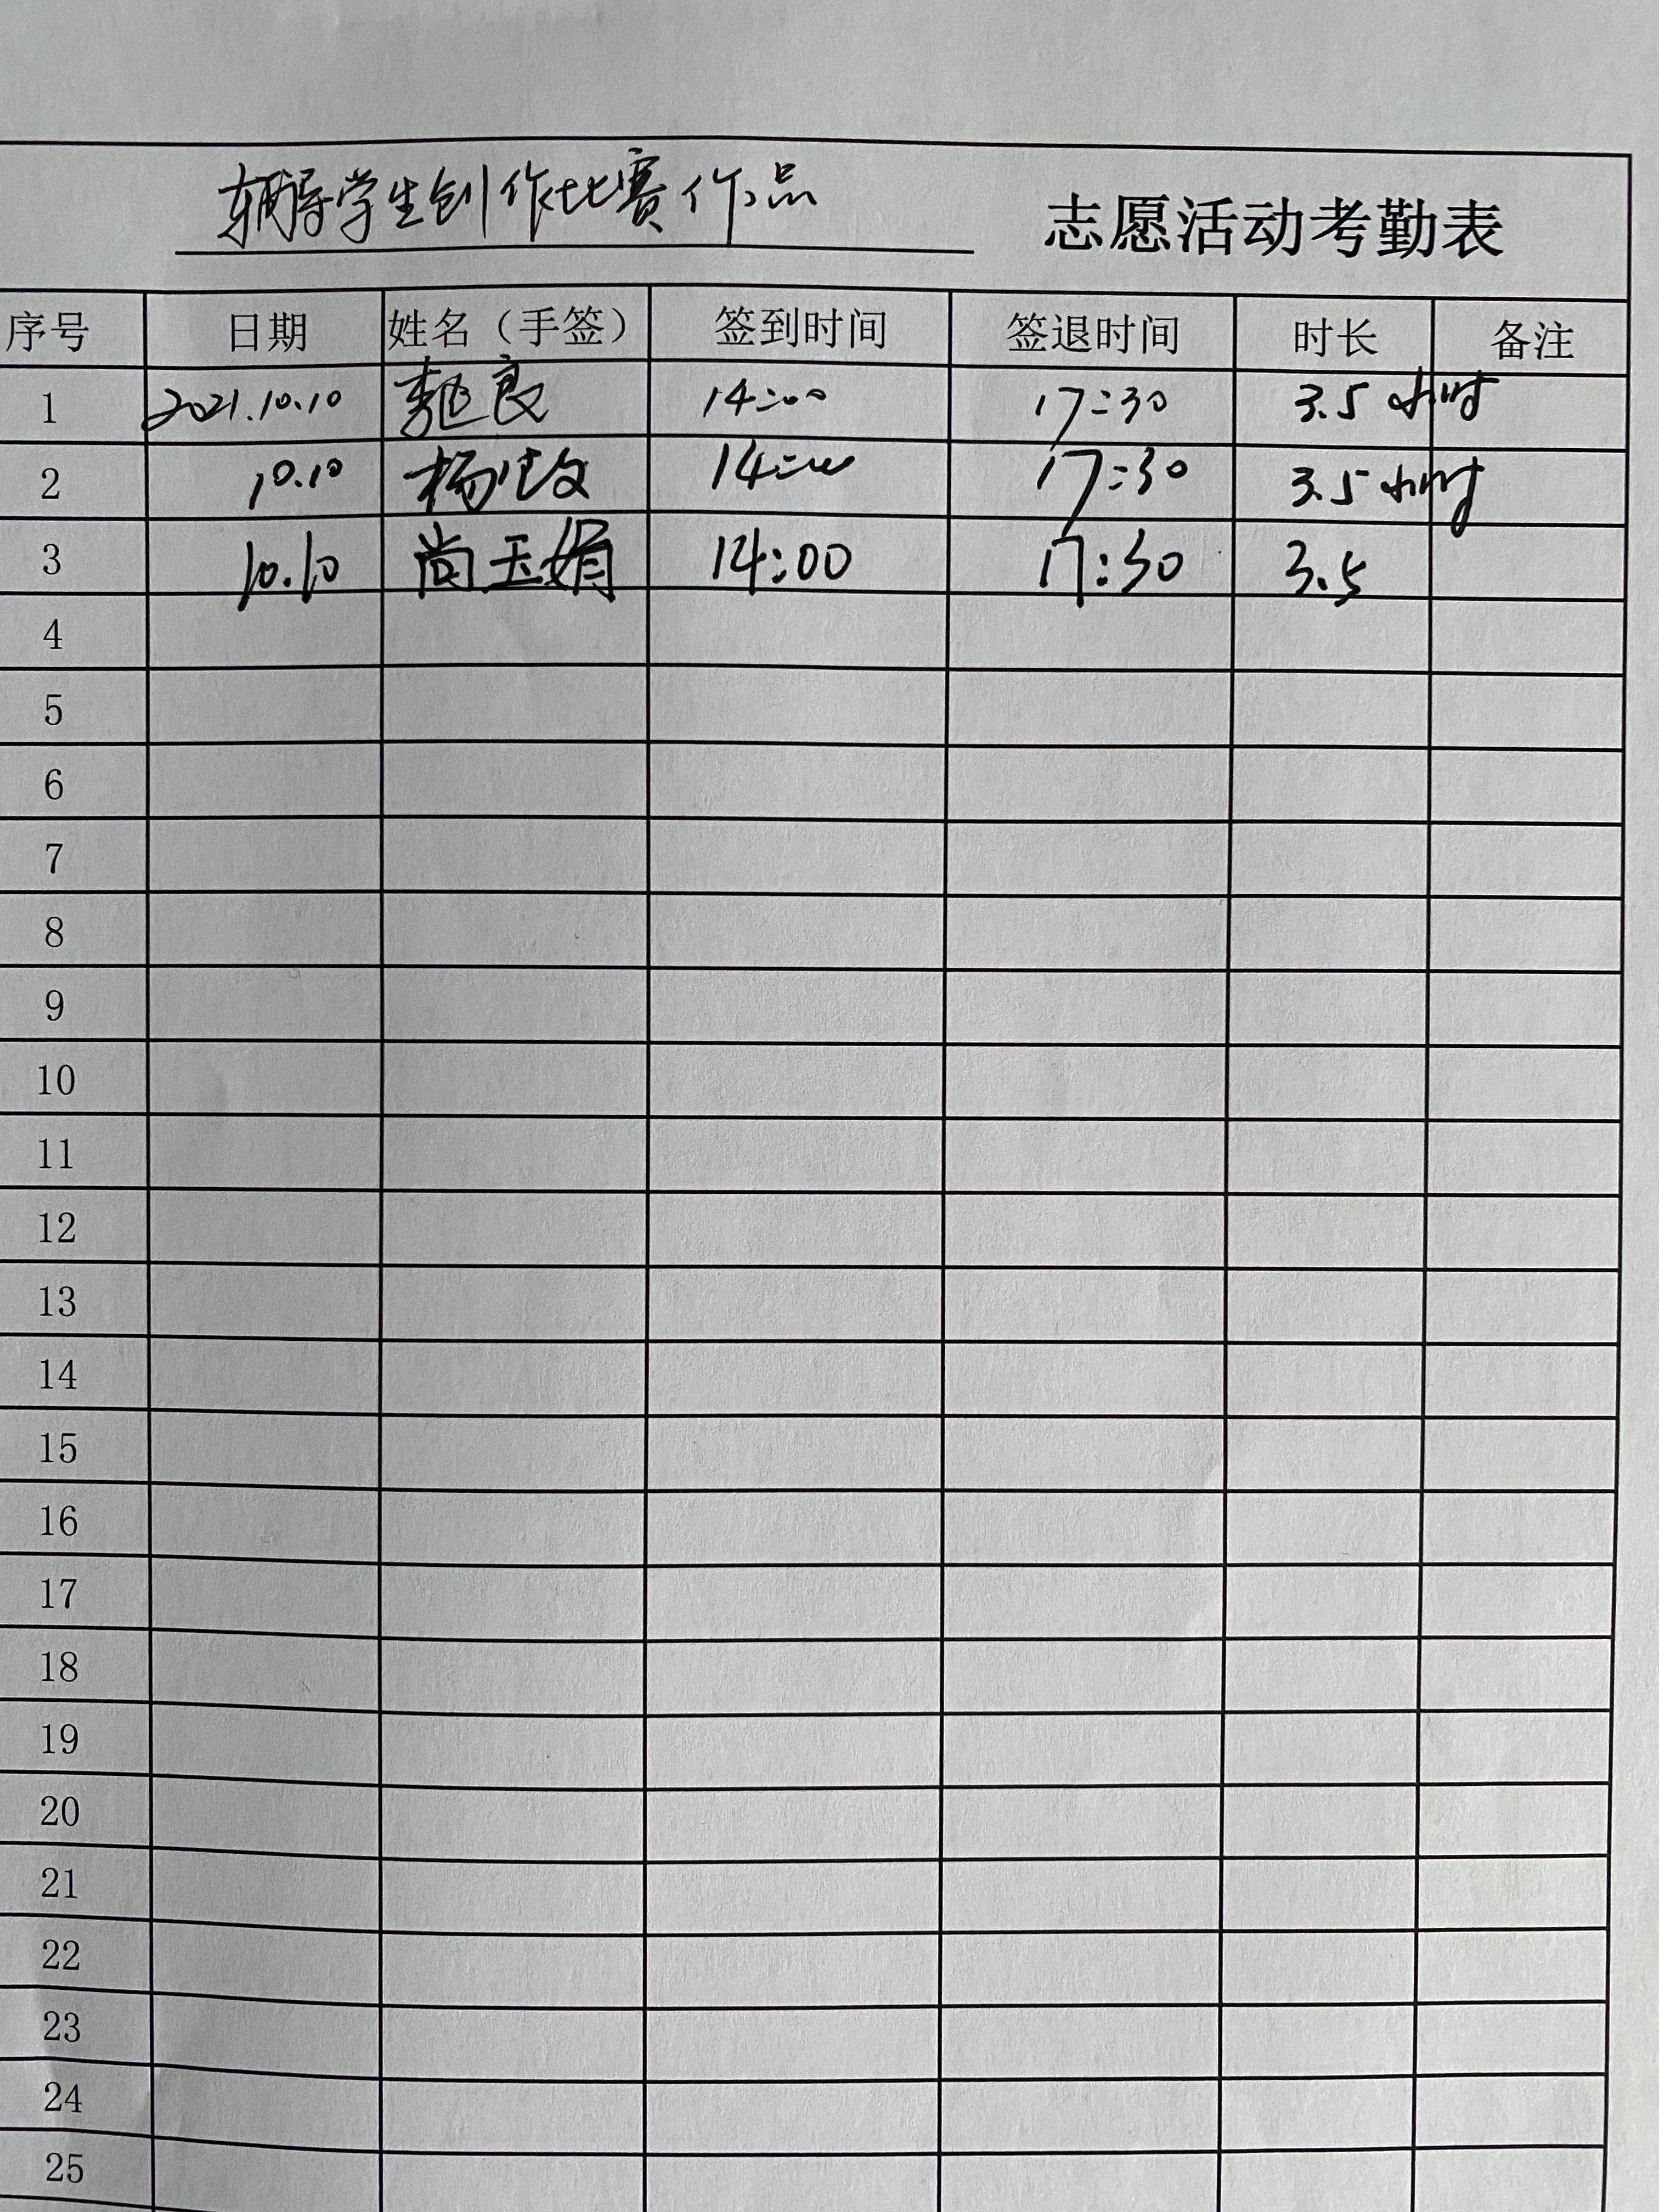 辅导学生创作比赛作品 志愿活动考勤表
序号 日期 姓名（手签） 签到时间 签退时间 时长 备注
1 2021.10.10 良 14:00 17:30 3.5 小时
2 10.10 杨 14:00 17:30 3.5 小时
3 10.10 尚玉娟 14:00 17:30 3.5
4
5
6
7
8
9
10
11
12
13
14
15
16
17
18
19
20
21
22
23
24
25